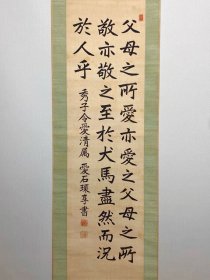 父母之所愛亦愛之父母之所
敬亦敬之至於犬馬盡然而況
於人乎
秀子令愛清屬 愛石環享書